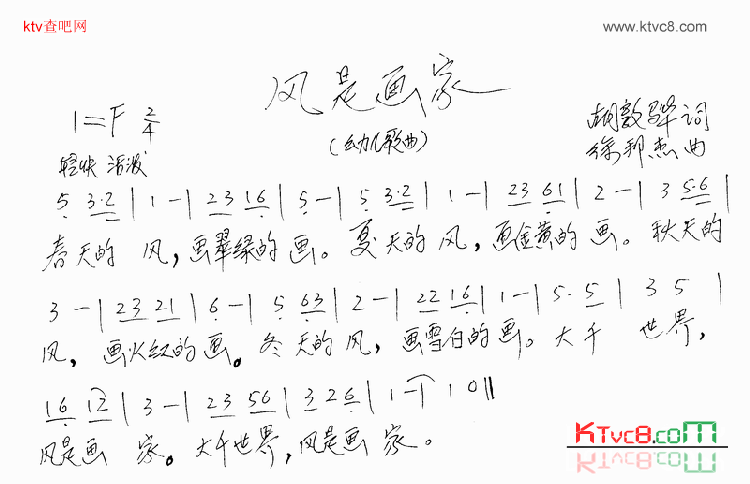 ktv查吧网
www.ktvc8.com
风是画家
(幼儿歌曲)
1=F 2/4
胡敦骅词
徐邦杰曲
轻快 活泼
5 3·2 | 1 - | 23 16 | 5 - | 5 3·2 | 1 - | 23 61 | 2 - | 3 5·6 |
春天的 风，画翠绿的画。夏天的风，画金黄的画。秋天的
3 - | 23 21 | 6 - | 5 63 | 2 - | 22 16 | 1 - | 5· 5 | 3 5 |
风，画火红的画。冬天的风，画雪白的画。大千 世界，
16 12 | 3 - | 23 56 | 3 26 | 1 - | 1 0 ||
风是画 家。大千世界，风是画 家。
KTvc8.com